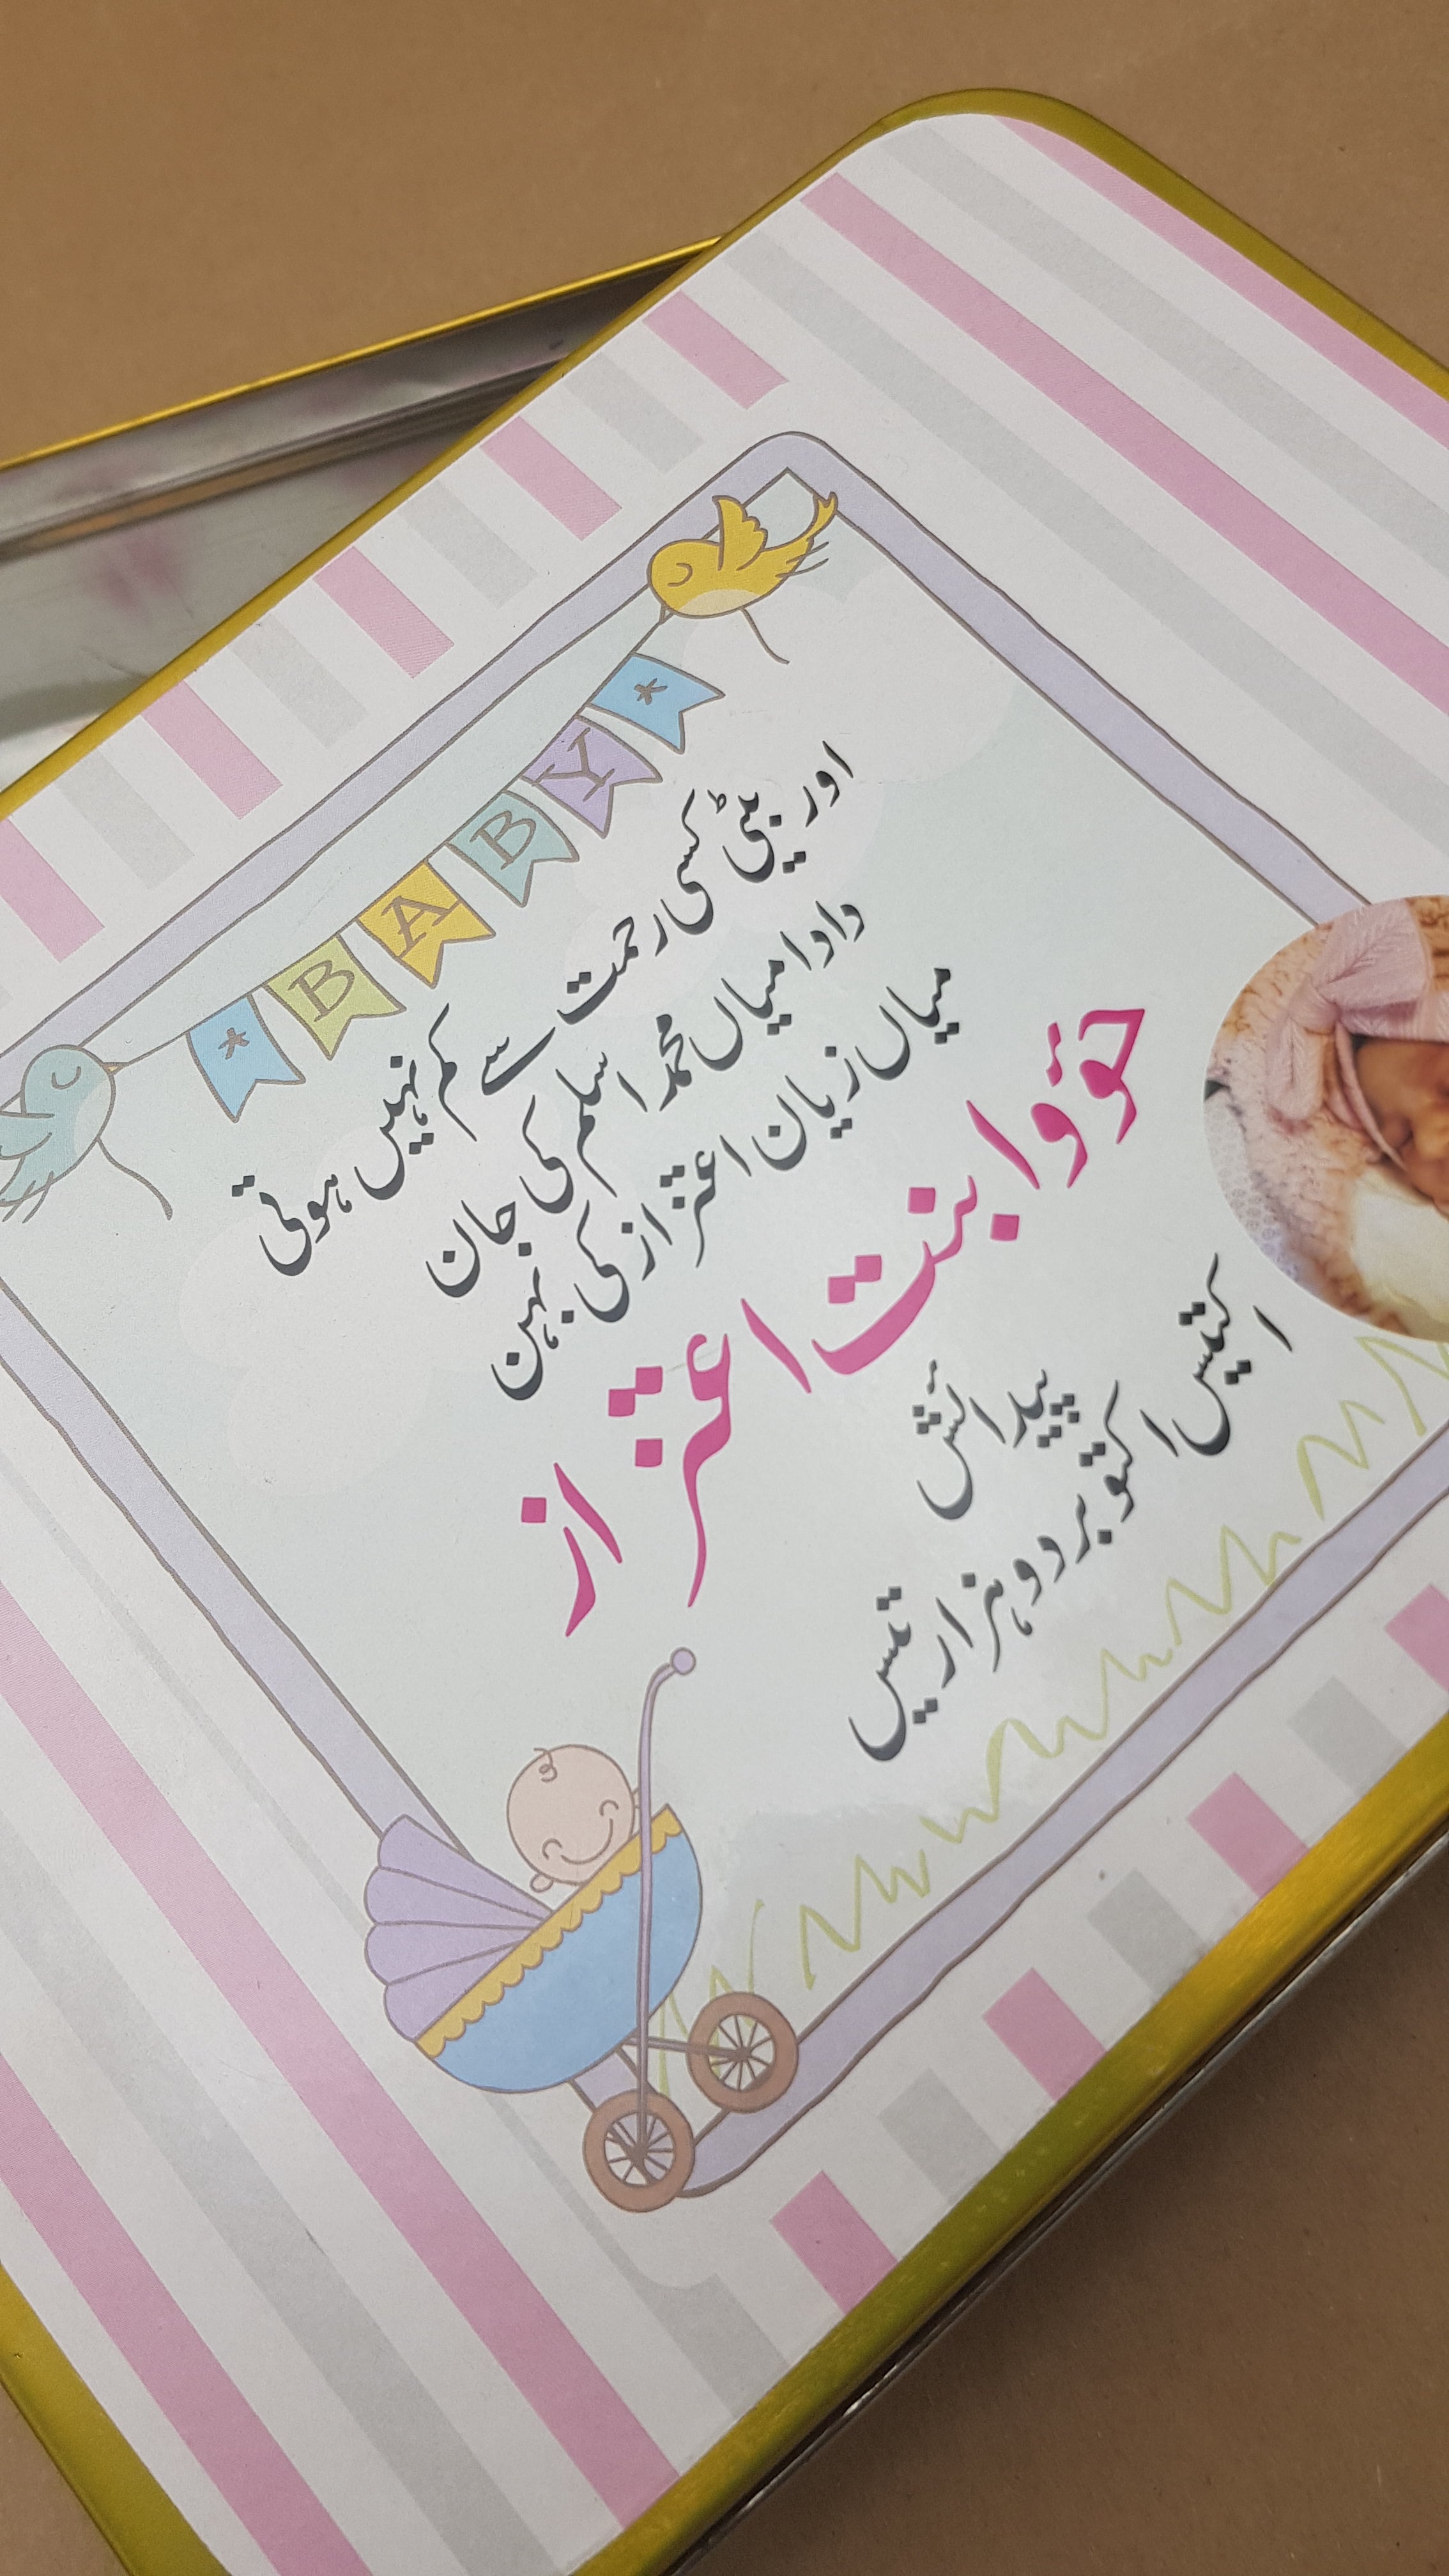 * BABY *
اور بیٹی کسی رحمت سے کم نہیں ہوتی
دادا میاں محمد اسلم کی جان
میاں زیان اعتزاز کی بہن
حوّا بنت اعتزاز
پیدائش
اکتیس اکتوبر دو ہزار تئیس